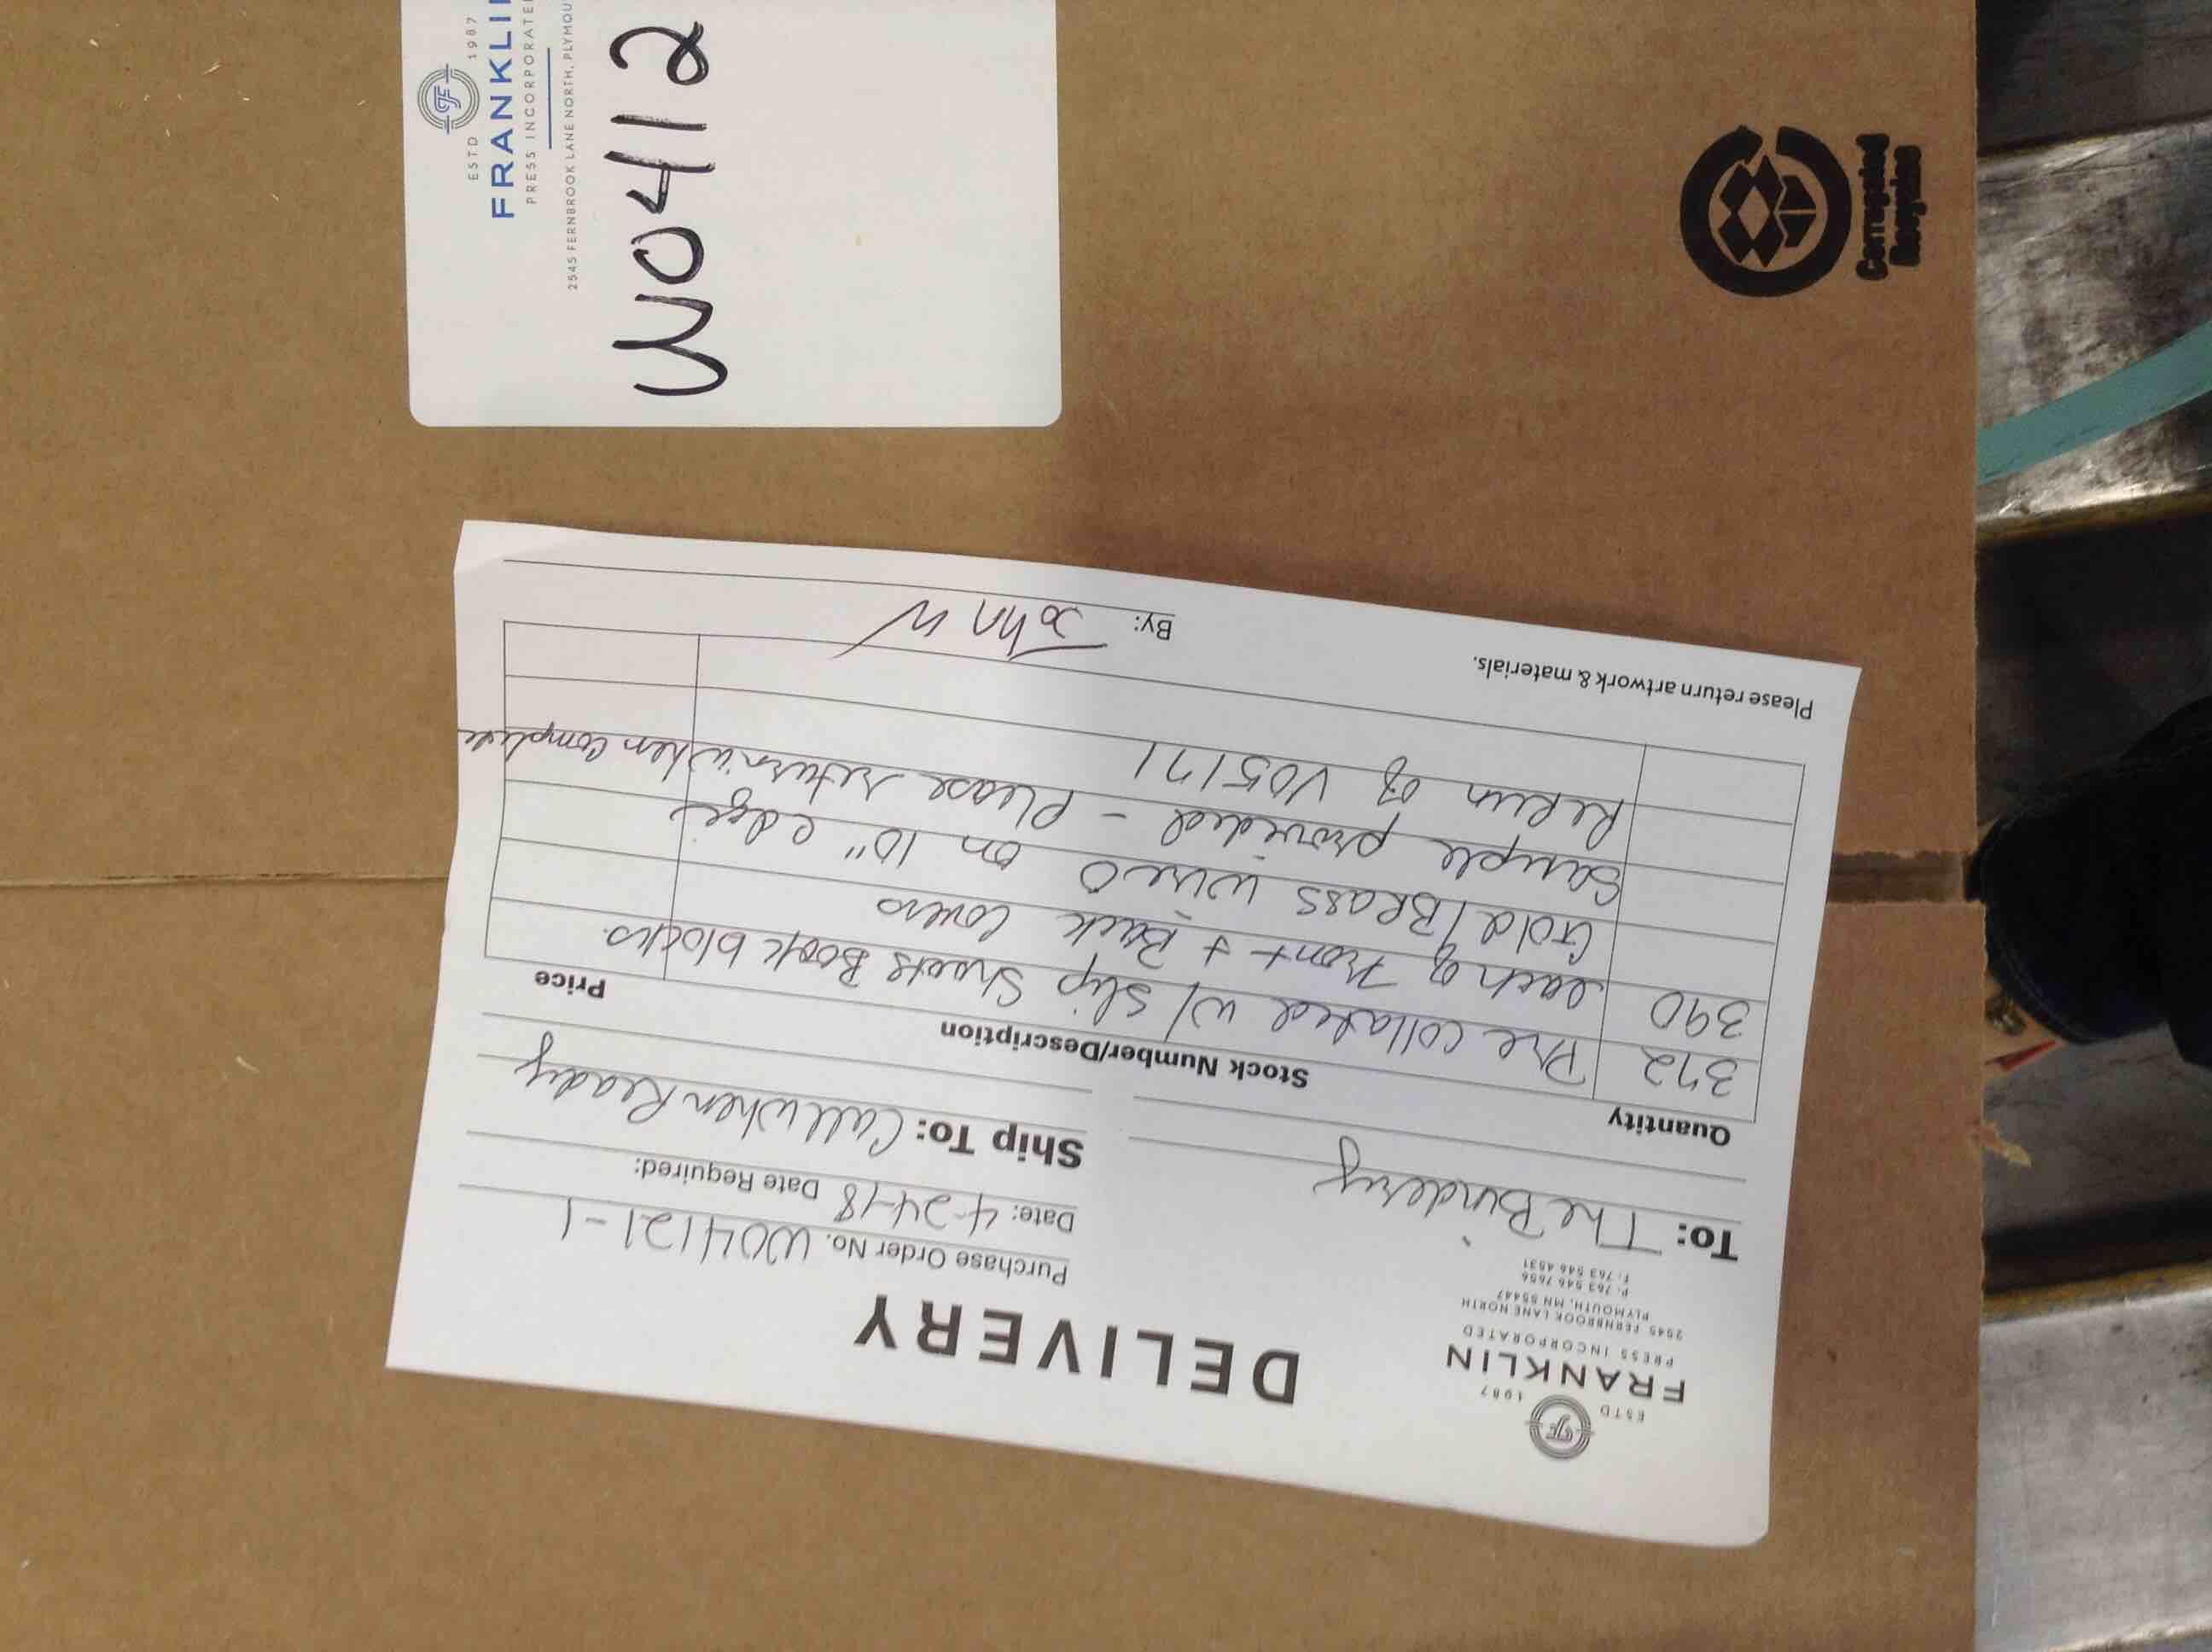 ESTD 1987
FRANKLI
PRESS INCORPORATE
2545 FERNBROOK LANE NORTH, PLYMOU
W0412
Corrugated
Recycles
ESTD 1987
FRANKLIN
PRESS INCORPORATED
2545 FERNBROOK LANE NORTH
PLYMOUTH, MN 55447
P: 763 546 7656
F: 763 546 4531
DELIVERY
Purchase Order No. W04121-1
Date: 4-24-18 Date Required:
To: The Bindery
Ship To: Call when Ready
Quantity Stock Number/Description Price
372 Pre collated w/ slip sheets Book blocks.
390 each of Front + Back Covers
Gold/Brass wireO on 10" edge
Sample provided - Please return when complete
ReRun of V05171
Please return artwork & materials.
By: John W